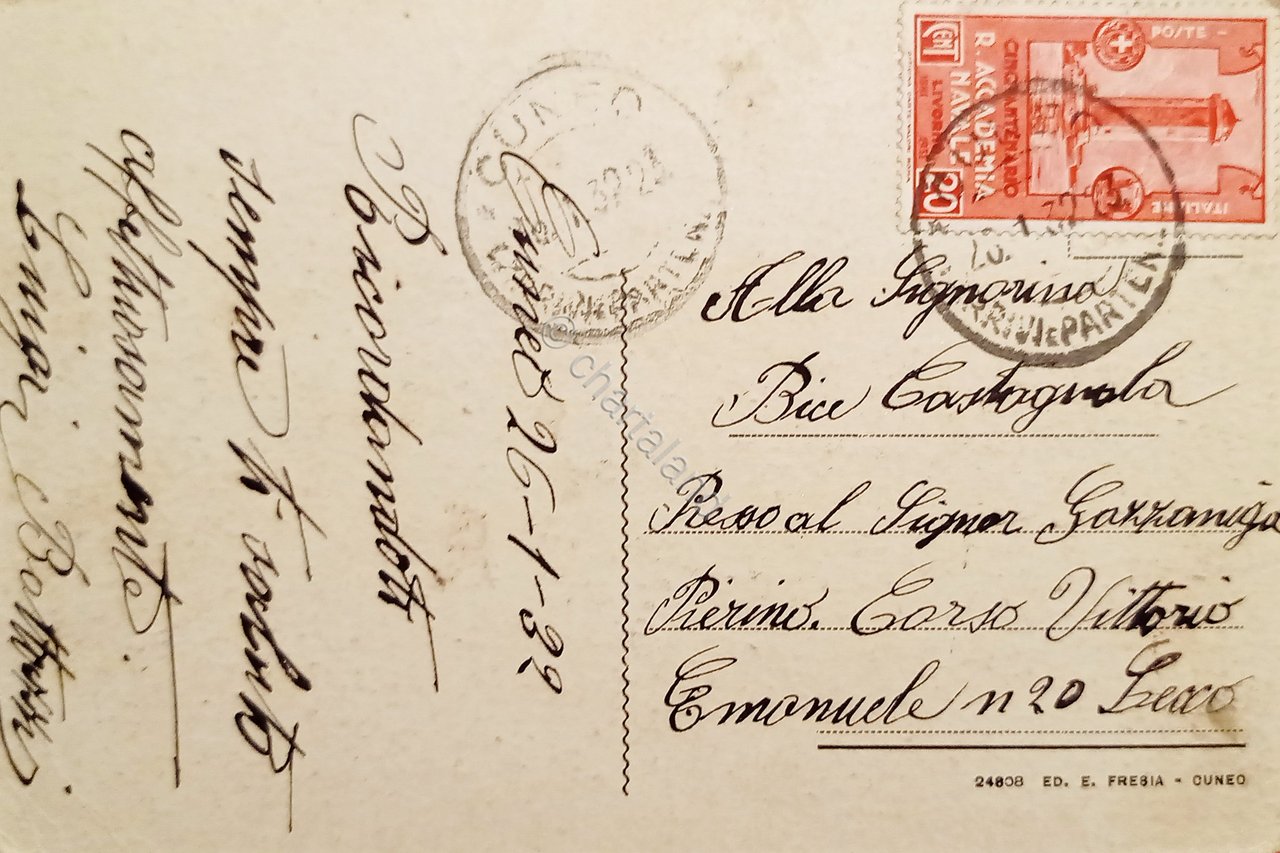 Cuneo 26-1-32
Ricordandoti
sempre ti saluto
affettuosamente
Luigi
Alla Signorina
Bice Castagnola
Presso al Signor Gazzaniga
Pierino. Corso Vittorio
Emanuele n 20 Lecco
24808 ED. E. FRESIA - CUNEO
POSTE -
ITALIANE
CINQUANTENARIO
R. ACCADEMIA
NAVALE
LIVORNO
CENT
20
CUNEO
32 21
ARRIVI E PARTEN
© chartaland